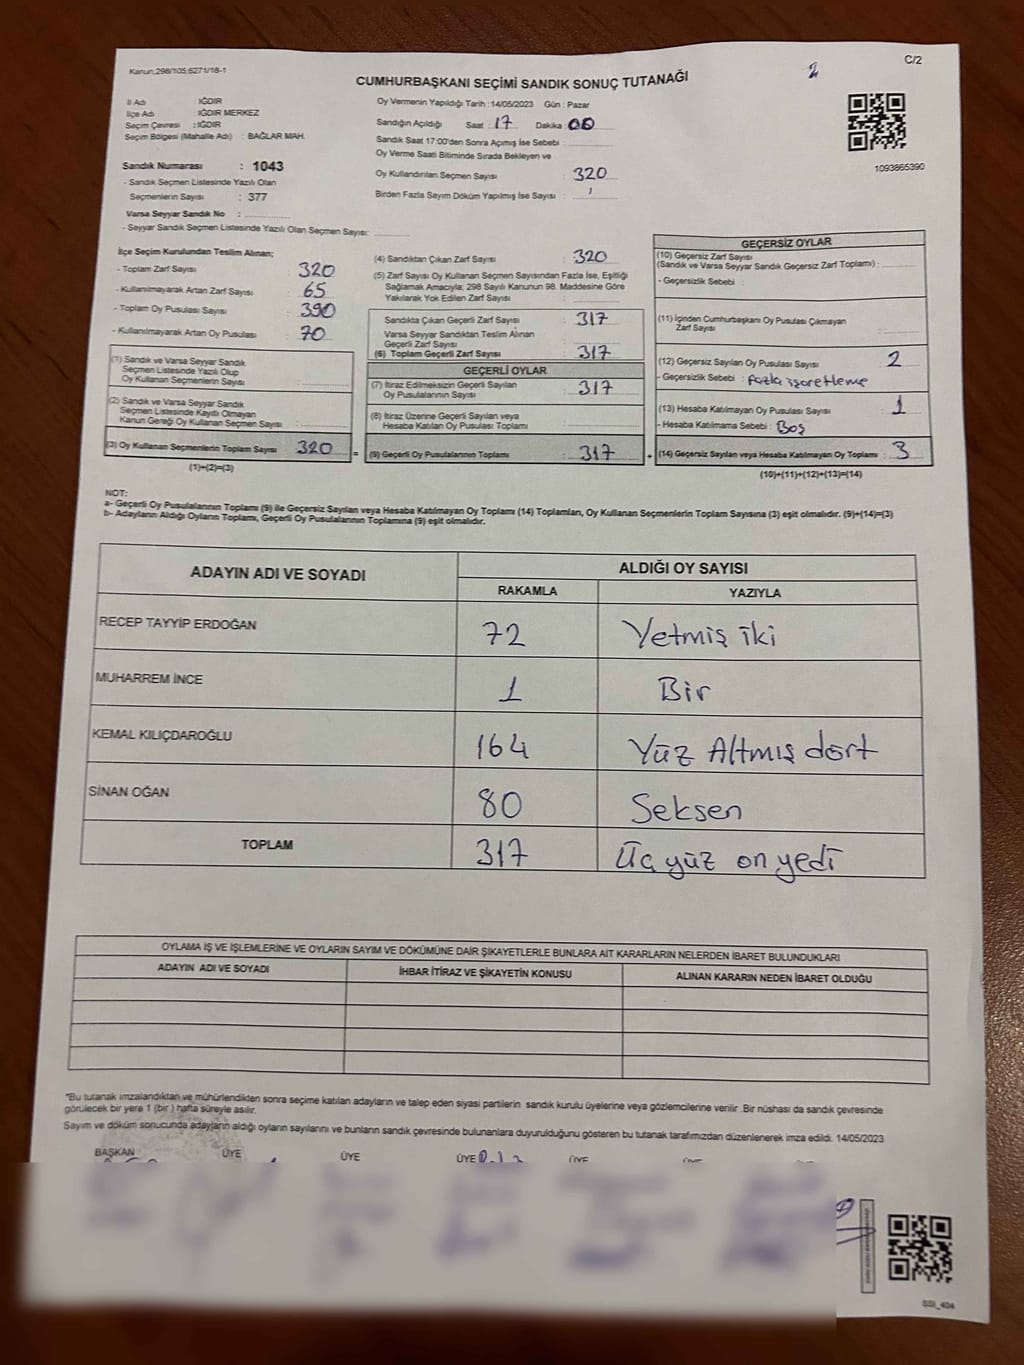 Kanun;298/105;6271/18-1
C/2
2
CUMHURBAŞKANI SEÇİMİ SANDIK SONUÇ TUTANAĞI
İl Adı : IĞDIR
İlçe Adı : IĞDIR MERKEZ
Seçim Çevresi : IĞDIR
Seçim Bölgesi (Mahalle Adı) : BAĞLAR MAH.
Sandık Numarası : 1043
- Sandık Seçmen Listesinde Yazılı Olan
Seçmenlerin Sayısı : 377
Varsa Seyyar Sandık No :
- Seyyar Sandık Seçmen Listesinde Yazılı Olan Seçmen Sayısı:
Oy Vermenin Yapıldığı Tarih : 14/05/2023 Gün : Pazar
Sandığın Açıldığı Saat : 17 Dakika : 00
Sandık Saat 17:00'den Sonra Açımış İse Sebebi :
Oy Verme Saati Bitiminde Sırada Bekleyen ve
Oy Kullandırılan Seçmen Sayısı : 320
Birden Fazla Sayım Döküm Yapılmış İse Sayısı : 1
1093865390
İlçe Seçim Kurulundan Teslim Alınan;
- Toplam Zarf Sayısı : 320
- Kullanılmayarak Artan Zarf Sayısı : 65
- Toplam Oy Pusulası Sayısı : 390
- Kullanılmayarak Artan Oy Pusulası : 70
(1) Sandık ve Varsa Seyyar Sandık
Seçmen Listesinde Yazılı Olup
Oy Kullanan Seçmenlerin Sayısı :
(2) Sandık ve Varsa Seyyar Sandık
Seçmen Listesinde Kayıtlı Olmayan
Kanun Gereği Oy Kullanan Seçmen Sayısı :
(3) Oy Kullanan Seçmenlerin Toplam Sayısı 320
(1)+(2)=(3)
(4) Sandıktan Çıkan Zarf Sayısı : 320
(5) Zarf Sayısı Oy Kullanan Seçmen Sayısından Fazla İse, Eşitliği
Sağlamak Amacıyla; 298 Sayılı Kanunun 98. Maddesine Göre
Yakılarak Yok Edilen Zarf Sayısı :
Sandıkta Çıkan Geçerli Zarf Sayısı : 317
Varsa Seyyar Sandıktan Teslim Alınan
Geçerli Zarf Sayısı :
(6) Toplam Geçerli Zarf Sayısı : 317
GEÇERLİ OYLAR
(7) İtiraz Edilmeksizin Geçerli Sayılan
Oy Pusulalarının Sayısı : 317
(8) İtiraz Üzerine Geçerli Sayılan veya
Hesaba Katılan Oy Pusulası Toplamı :
= (9) Geçerli Oy Pusulalarının Toplamı : 317
GEÇERSİZ OYLAR
(10) Geçersiz Zarf Sayısı
(Sandık ve Varsa Seyyar Sandık Geçersiz Zarf Toplamı) :
- Geçersizlik Sebebi :
(11) İçinden Cumhurbaşkanı Oy Pusulası Çıkmayan
Zarf Sayısı :
(12) Geçersiz Sayılan Oy Pusulası Sayısı : 2
- Geçersizlik Sebebi : fazla işaretleme
(13) Hesaba Katılmayan Oy Pusulası Sayısı : 1
- Hesaba Katılmama Sebebi : Boş
+ (14) Geçersiz Sayılan veya Hesaba Katılmayan Oy Toplamı : 3
(10)+(11)+(12)+(13)=(14)
NOT:
a- Geçerli Oy Pusulalarının Toplamı (9) ile Geçersiz Sayılan veya Hesaba Katılmayan Oy Toplamı (14) Toplamları, Oy Kullanan Seçmenlerin Toplam Sayısına (3) eşit olmalıdır. (9)+(14)=(3)
b- Adayların Aldığı Oyların Toplamı, Geçerli Oy Pusulalarının Toplamına (9) eşit olmalıdır.
ADAYIN ADI VE SOYADI ALDIĞI OY SAYISI
RAKAMLA YAZIYLA
RECEP TAYYİP ERDOĞAN 72 Yetmiş iki
MUHARREM İNCE 1 Bir
KEMAL KILIÇDAROĞLU 164 Yüz Altmış dört
SİNAN OĞAN 80 Seksen
TOPLAM 317 Üç yüz on yedi
OYLAMA İŞ VE İŞLEMLERİNE VE OYLARIN SAYIM VE DÖKÜMÜNE DAİR ŞİKAYETLERLE BUNLARA AİT KARARLARIN NELERDEN İBARET BULUNDUKLARI
ADAYIN ADI VE SOYADI İHBAR İTİRAZ VE ŞİKAYETİN KONUSU ALINAN KARARIN NEDEN İBARET OLDUĞU
*Bu tutanak imzalandıktan ve mühürlendikten sonra seçime katılan adayların ve talep eden siyasi partilerin sandık kurulu üyelerine veya gözlemcilerine verilir. Bir nüshası da sandık çevresinde
görülecek bir yere 1 (bir) hafta süreyle asılır.
Sayım ve döküm sonucunda adayların aldığı oyların sayılarını ve bunların sandık çevresinde bulunanlara duyurulduğunu gösteren bu tutanak tarafımızdan düzenlenerek imza edildi. 14/05/2023
BAŞKAN ÜYE ÜYE ÜYE ÜYE
SSI_404